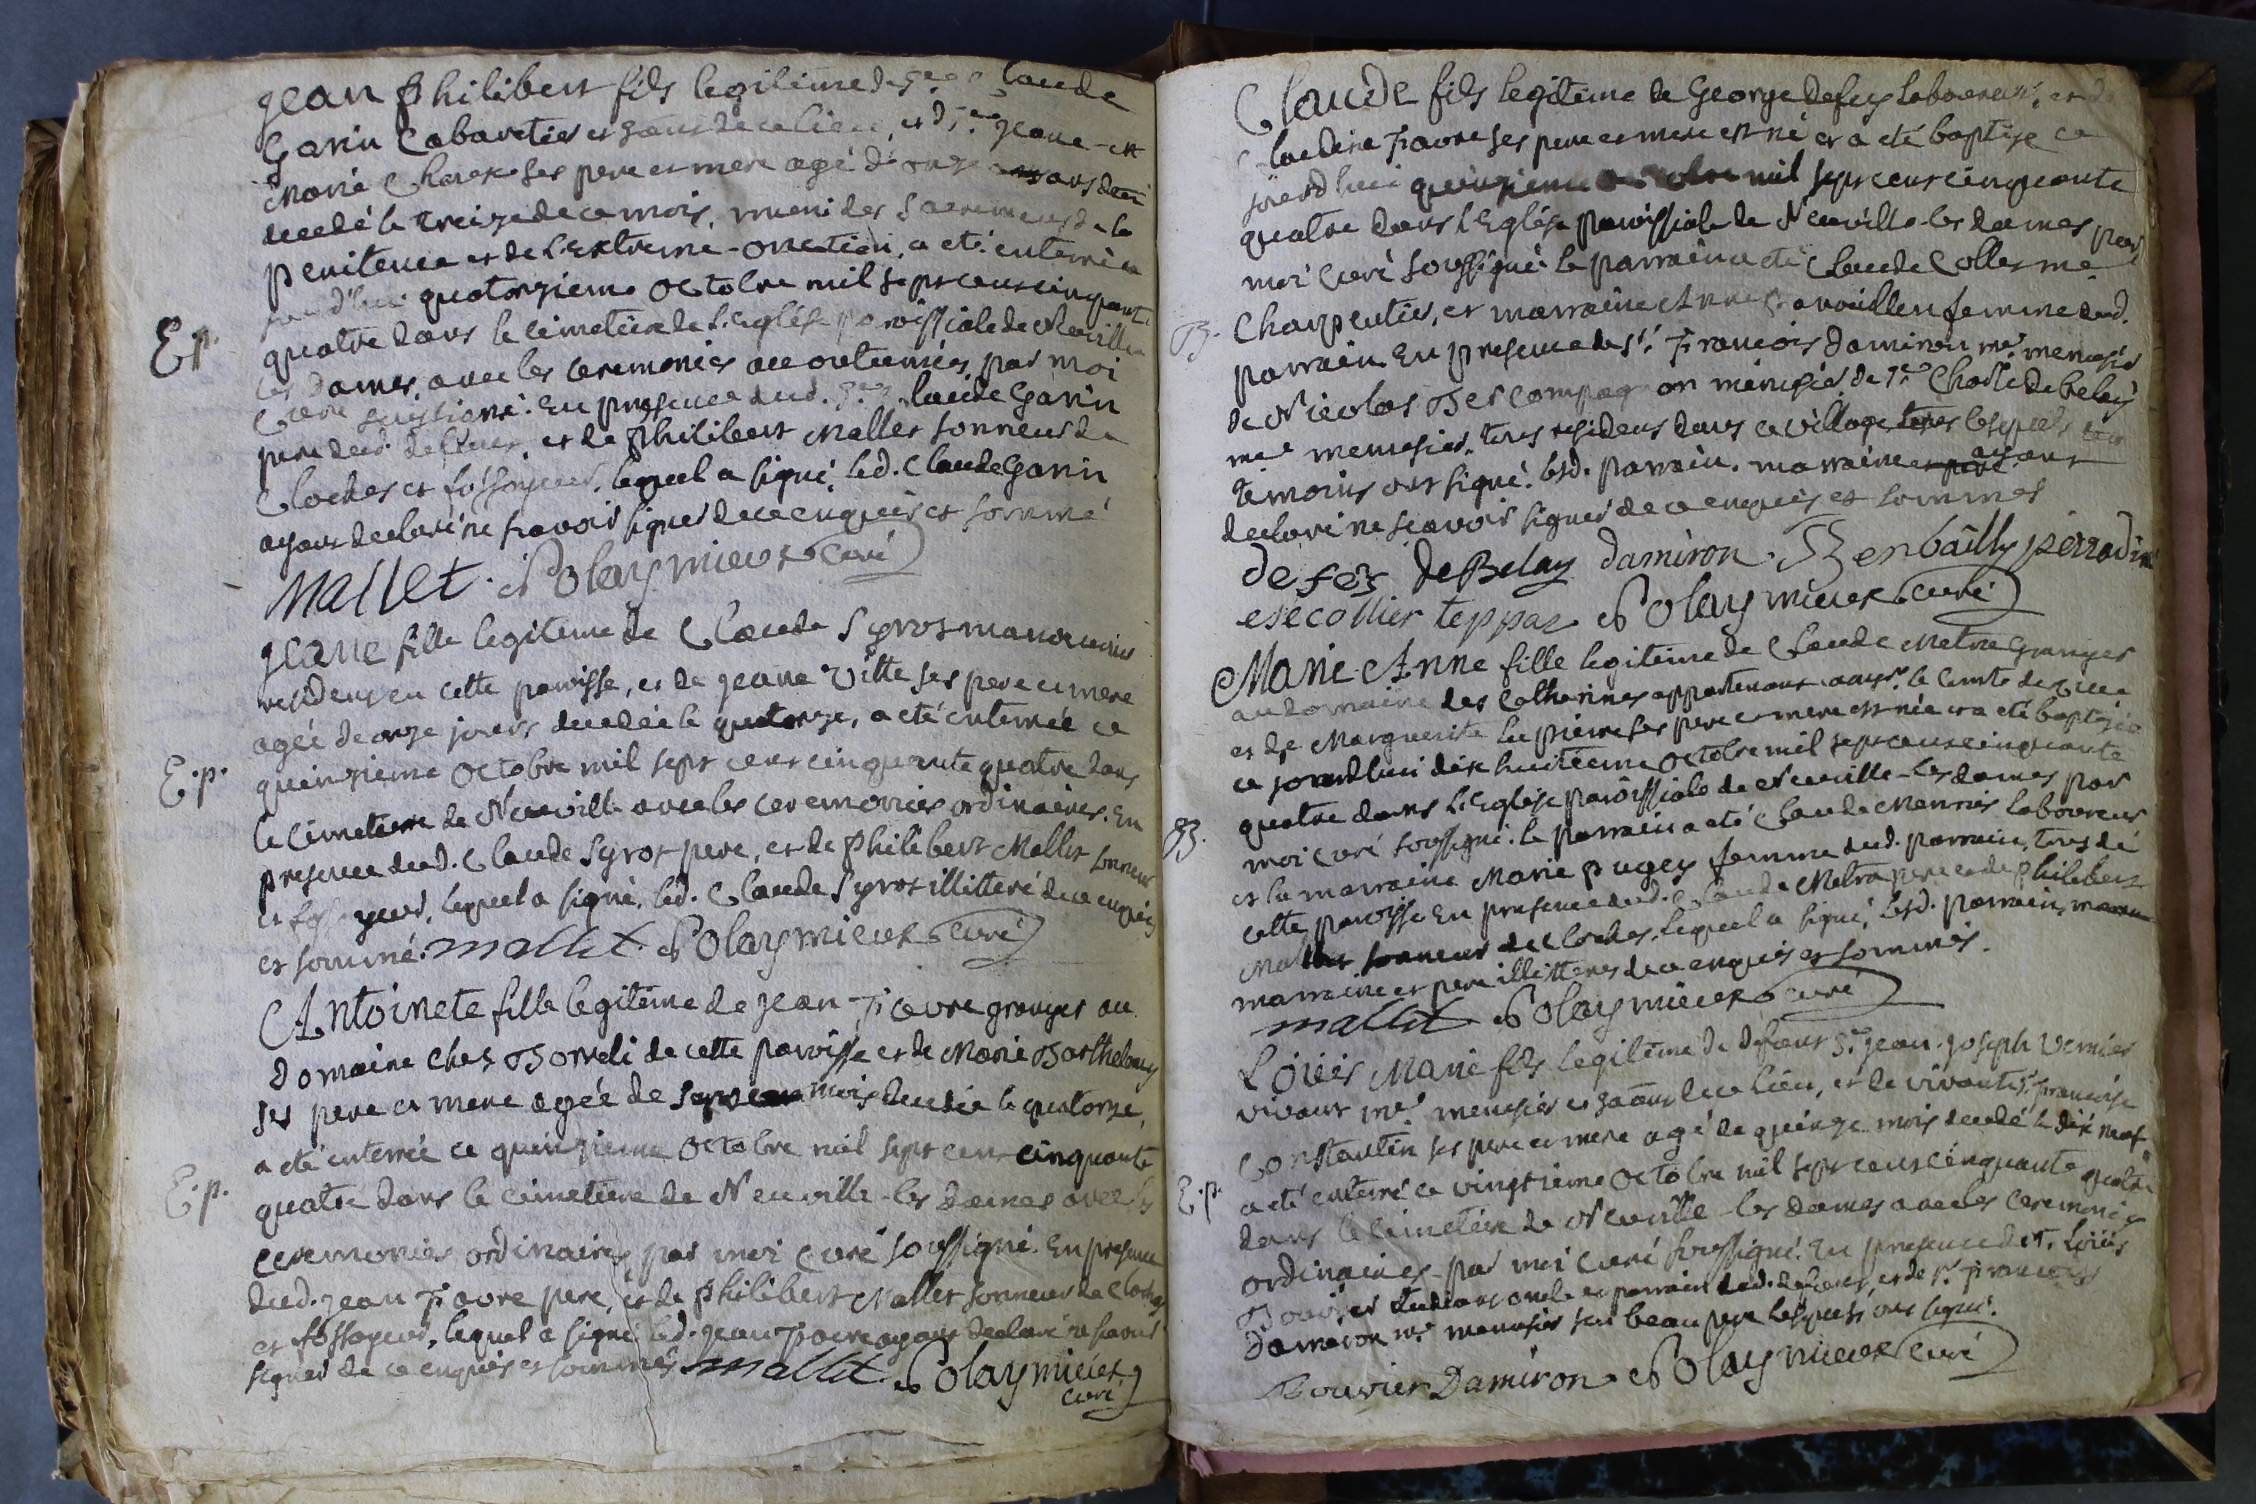 Jean Philibert fils legitime de Sr Claude
Garin Cabaretier et de ce lieu, et Jeane
Marie ses pere et mere agé d'onze ans
decedé le treize de ce mois, muni des Sacremens de la
penitence et de L'Extreme-onction, a eté enterré ce
jourd'hui quatorzieme Octobre mil sept cens cinquante
E p.
quatre dans le cimetiere de L'Eglise paroissiale de Neuville
les dames, avec les ceremonies accoutumées, par moi
Curé sussigné. En presence dud. Sr Claude Garin
pere dud. defunct, et de Philibert Mallet sonneur de
Cloches et fossoyeur, lequel a signé, led. Claude Garin
ayant declaré ne sçavoir signer de ce enquis et sommé
Mallet. Polaymieux Curé
Jeane fille legitime de Claude Syrot manouvrier
resident en cette paroisse, et de Jeane Vitte ses pere et mere
agée de onze jours decedée le quatorze, a eté enterrée ce
E. p.
quinzieme Octobre mil sept cens cinquante quatre dans
le Cimetiere de Neuville avec les ceremonies ordinaires. En
presence dud. Claude Syrot pere, et de Philibert Mallet sonneur
et fossoyeur, lequel a signé, led. Claude Syrot illitteré de ce enquis
et sommé. Mallet Polaymieux Curé
Antoinete fille legitime de Jean Favre granger au
domaine chez Borreli de cette paroisse et de Marie Barthelemy
ses pere et mere agée de mois decedée le quatorze,
a eté enterrée ce quinzieme Octobre mil sept cens cinquante
E. p.
quatre dans le cimetiere de Neuville-les dames avec les
ceremonies ordinaires, par moi Curé soussigné. En presence
dud. Jean Favre pere, et de Philibert Mallet sonneur de Cloches
et fossoyeur, lequel a signé led. Jean Favre ayant declaré ne sçavoir
signer de ce enquis et sommés Mallet. Polaymieux
Curé
Claude fils legitime de George Defey laboureur, et de
Claudine Favre ses pere et mere est né et a eté baptisé ce
jourd'hui quinzieme octobre mil sept cens cinquante
quatre dans L'Eglise paroissiale de Neuville-les dames par
moi Curé soussigné. le parrain a eté Claude Collet me
B.
Charpentier, et marraine Anne femme dud.
parrain. En presence de Sr. François Damiron me menusier
de Nicolas Ber compagnon menusier de Sr Charle de Beley
me menusier. tous residens dans ce village lesquels
temoins ont signé. lesd. parrain. marraine ayant
declaré ne sçavoir signer de ce enquis et sommés
de fey de Belay Damiron. Ber bailly perradin
esecollier teppaz Polaymieux Curé
Marie-Anne fille legitime de Claude Metra Granger
au domaine des Catherines appartenant a Mr. le Comte de
et de Marguerite Lapierre ses pere et mere est née et a eté baptisée
ce jourd'hui dix huitieme Octobre mil sept cens cinquante
quatre dans L'Eglise paroissiale de Neuville-les dames par
B.
moi curé soussigné. le parrain a eté Claude Monnier laboureur
et la marraine Marie Pugey femme dud. parrain, tous de
cette paroisse En presence dud. Claude Metra pere et de Philibert
Mallet sonneur de Cloches, lequel a signé, lesd. parrain,
marraine et pere illitteres de ce enquis et sommés.
Mallet Polaymieux Curé
Loüis Marie fils legitime de defunt Sr. Jean-Joseph Vernier
vivant me menusier et de ce lieu, et de vivante françoise
Constantin ses pere et mere agé de quinze mois decedé le dix neuf
E. p.
a eté enterré ce vingtieme Octobre mil sept cens cinquante quatre
dans le cimetiere de Neuville-les dames avec les ceremonies
ordinaires par moi Curé soussigné. En presence de Sr. Loüis
Bouvier oncle et parrain dud. defunt, et de Sr. François
Damiron me menusier son beau pere lesquels ont signé.
Bouvier Damiron Polaymieux Curé